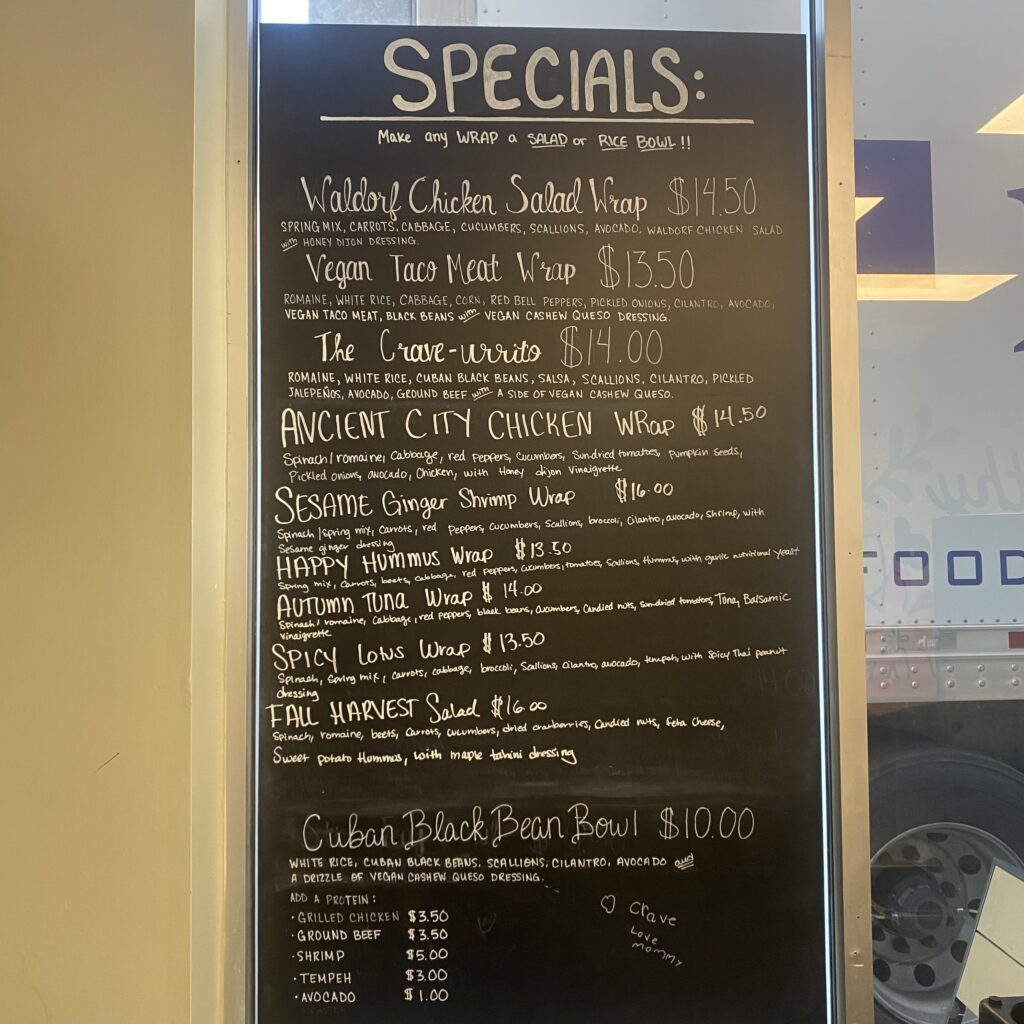 SPECIALS:
Make any WRAP a SALAD or RICE BOWL!!
Waldorf Chicken Salad Wrap $14.50
SPRING MIX, CARROTS, CABBAGE, CUCUMBERS, SCALLIONS, AVOCADO, WALDORF CHICKEN SALAD
with HONEY DIJON DRESSING.
Vegan Taco Meat Wrap $13.50
ROMAINE, WHITE RICE, CABBAGE, CORN, RED BELL PEPPERS, PICKLED ONIONS, CILANTRO, AVOCADO,
VEGAN TACO MEAT, BLACK BEANS with VEGAN CASHEW QUESO DRESSING.
The Crave-urrito $14.00
ROMAINE, WHITE RICE, CUBAN BLACK BEANS, SALSA, SCALLIONS, CILANTRO, PICKLED
JALEPEÑOS, AVOCADO, GROUND BEEF with A SIDE OF VEGAN CASHEW QUESO.
ANCIENT CITY CHICKEN WRap $14.50
Spinach/romaine, Cabbage, red peppers, Cucumbers, Sundried tomatoes, Pumpkin Seeds,
Pickled onions, avocado, Chicken, with Honey dijon Vinaigrette
SESAME Ginger Shrimp Wrap $16.00
Spinach/spring mix, Carrots, red Peppers, cucumbers, Scallions, broccoli, Cilantro, avocado, Shrimp, with
Sesame ginger dressing
HAPPY HUMMUS Wrap $13.50
Spring mix, Carrots, beets, cabbage, red peppers, Cucumbers, tomatoes, Scallions, Hummus, with garlic nutritional yeast
AUTUMN TUNA Wrap $14.00
Spinach/romaine, Cabbage, red peppers, black beans, Cucumbers, Candied nuts, Sun-dried tomatoes, Tuna, Balsamic
Vinaigrette
SPICY Lotus Wrap $13.50
Spinach, Spring mix, Carrots, cabbage, broccoli, Scallions, Cilantro, avocado, tempeh, with Spicy Thai peanut
dressing
FALL HARVEST Salad $16.00
Spinach, romaine, beets, Carrots, cucumbers, dried cranberries, Candied nuts, feta Cheese,
Sweet potato Hummus, with maple tahini dressing
Cuban Black Bean Bowl $10.00
WHITE RICE, CUBAN BLACK BEANS, SCALLIONS, CILANTRO, AVOCADO and
A DRIZZLE OF VEGAN CASHEW QUESO DRESSING.
ADD A PROTEIN:
·GRILLED CHICKEN $3.50
·GROUND BEEF $3.50
·SHRIMP $5.00
·TEMPEH $3.00
·AVOCADO $1.00
Crave
Love
Mommy
thy
FOOD